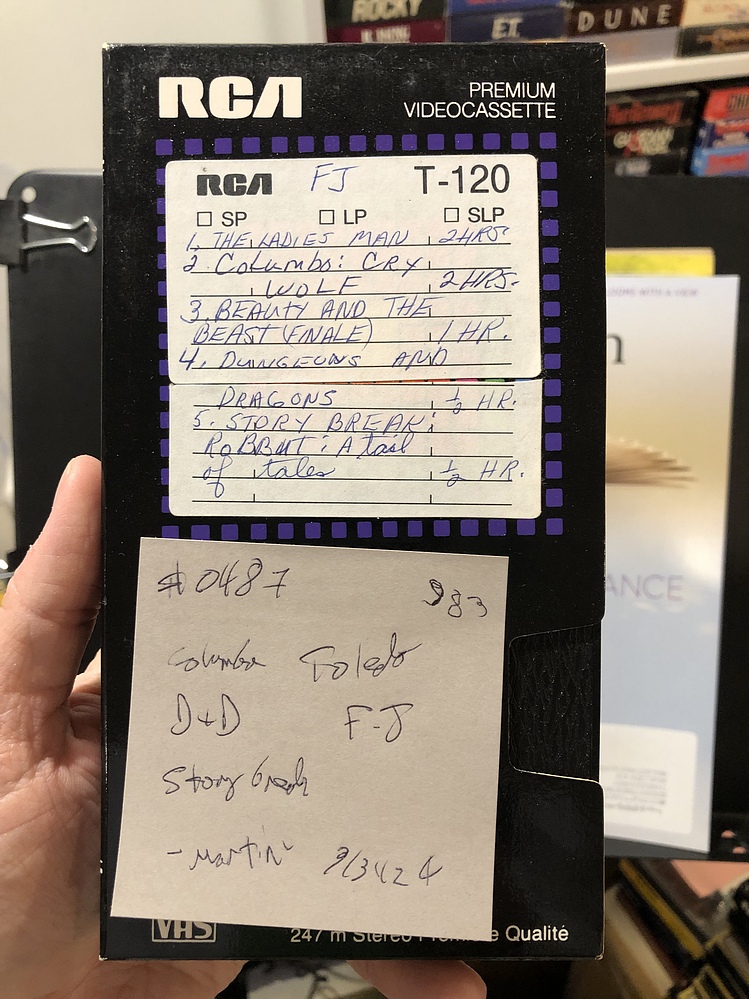 ROCKY
E.T.
DUNE
RCA
PREMIUM
VIDEOCASSETTE
RCA FJ T-120
SP LP SLP
1. THE LADIES MAN 2HRS.
2. COLUMBO: CRY
WOLF 2HRS.
3. BEAUTY AND THE
BEAST (FINALE) 1 HR.
4. DUNGEONS AND
DRAGONS ½ HR.
5. STORY BREAK:
ROBBUT: A tail
of tales ½ HR.
#0487 983
Columbo Toledo
D+D F-J
Story break
-Martin
VHS
247 m Stereo Qualité
ANCE